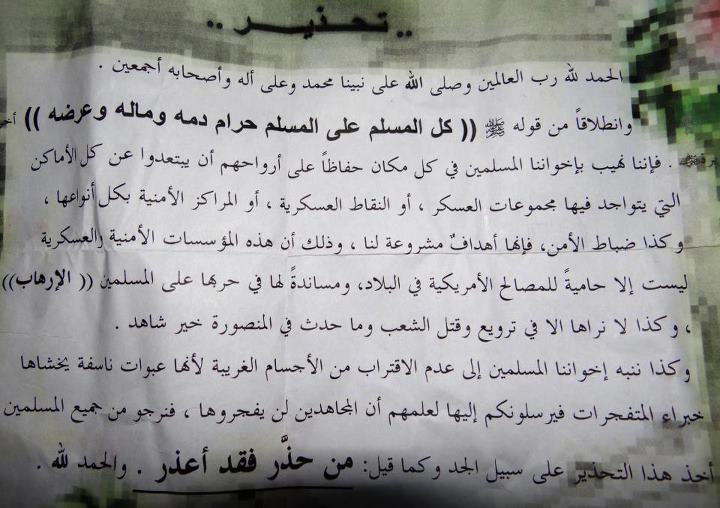 .. تحذير ..
الحمد لله رب العالمين وصلى الله على نبينا محمد وعلى أله وأصحابه أجمعين .
وانطلاقاً من قوله ﷺ (( كل المسلم على المسلم حرام دمه وماله وعرضه ))
. فإننا نهيب بإخواننا المسلمين في كل مكان حفاظاً على أرواحهم أن يبتعدوا عن كل الأماكن
التي يتواجد فيها مجموعات العسكر ، أو النقاط العسكرية ، أو المراكز الأمنية بكل أنواعها ،
وكذا ضباط الأمن، فإنها أهدافٌ مشروعة لنا ، وذلك أن هذه المؤسسات الأمنية والعسكرية
ليست إلا حاميةً للمصالح الأمريكية في البلاد، ومساندةً لها في حربها على المسلمين (( الإرهاب))
، وكذا لا نراها الا في ترويع وقتل الشعب وما حدث في المنصورة خير شاهد .
وكذا ننبه إخواننا المسلمين إلى عدم الاقتراب من الأجسام الغريبة لأنها عبوات ناسفة يخشاها
خبراء المتفجرات فيرسلونكم إليها لعلمهم أن المجاهدين لن يفجروها ، فنرجو من جميع المسلمين
أخذ هذا التحذير على سبيل الجد وكما قيل: من حذَّر فقد أعذر . والحمد لله .